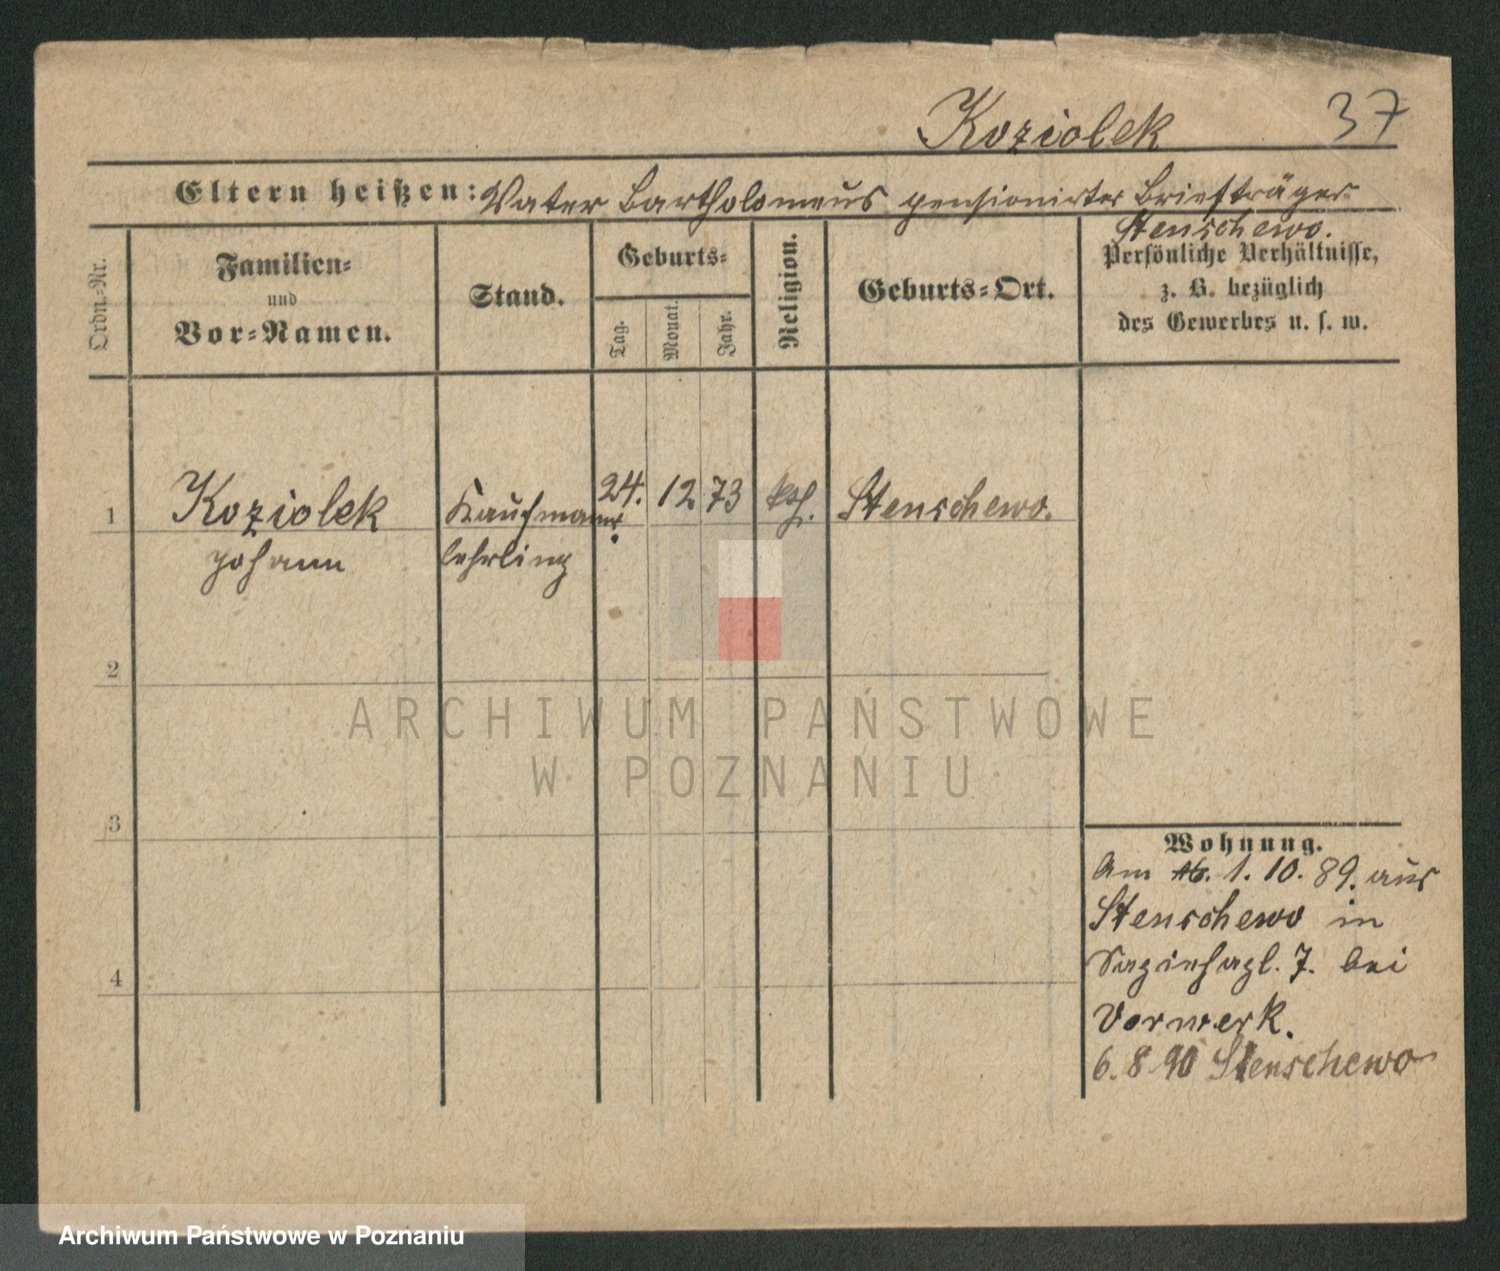 Koziolek 37
Eltern heißen: Vater Bartholomeus pensionirter Briefträger
Stenschewo.
Ordn.-Nr.
Familien-
und
Vor-Namen.
Stand.
Geburts-
Tag.
Monat.
Jahr.
Religion.
Geburts-Ort.
Persönliche Verhältnisse,
z. B. bezüglich
des Gewerbes u. s. w.
1 Koziolek Kaufmanns 24. 12 73 kth. Stenschewo.
Johann lehrling
2
3
4
Wohnung.
Am 1. 10. 89. aus
Stenschewo in
7. bei
Vorwerk.
6. 8. 90 Stenschewo
ARCHIWUM PAŃSTWOWE
W POZNANIU
Archiwum Państwowe w Poznaniu